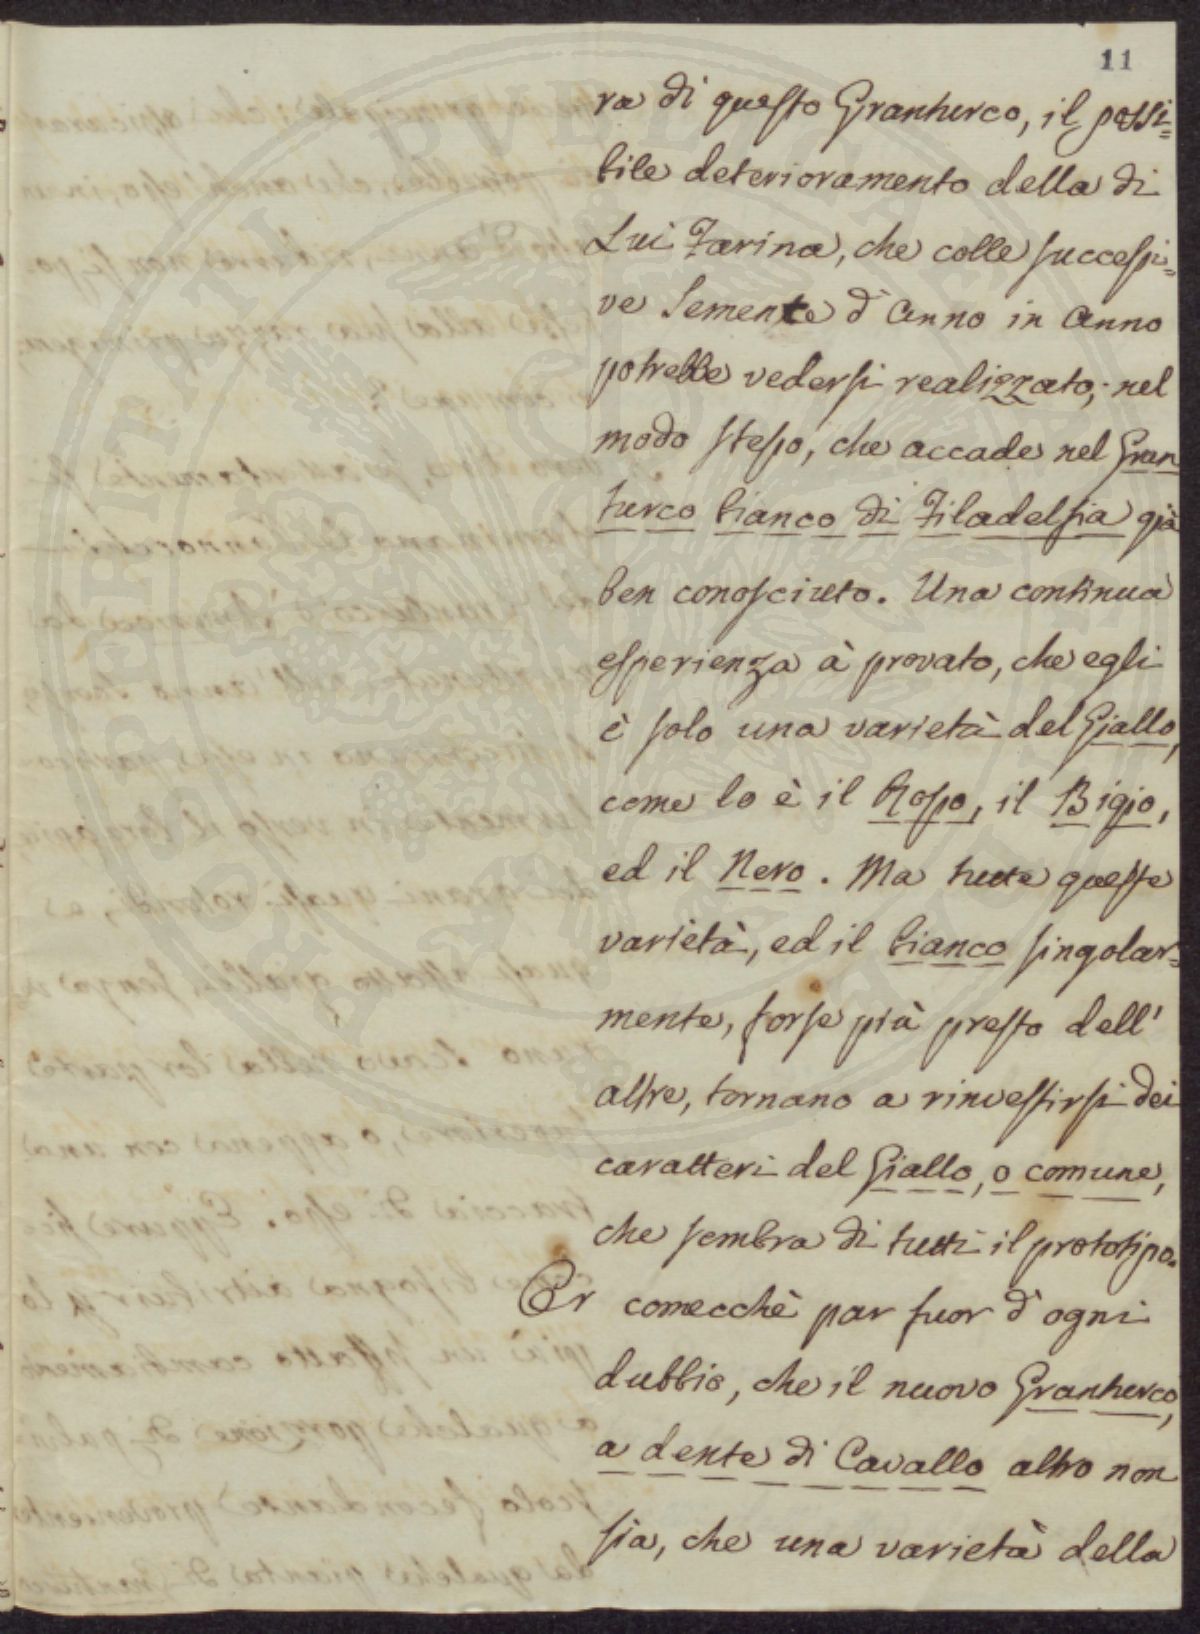 11
ra di questo Granturco, il possi=
bile deterioramento della di
Lui Farina, che colle successi=
ve Semente d'anno in anno
potrebbe vedersi realizzato; nel
modo stesso, che accade nel Gran
turco bianco di Filadelfia già
ben conosciuto. Una continua
esperienza à provato, che egli
è solo una varietà del Giallo,
come lo è il Rosso, il Bigio,
ed il Nero. Ma tutte queste
varietà, ed il bianco singolar=
mente, forse più presto dell'
altre, tornano a rinvestirsi dei
caratteri del Giallo, o comune,
che sembra di tutti il prototipo.
Or comecchè par fuor d'ogni
dubbio, che il nuovo Granturco,
a dente di Cavallo altro non
sia, che una varietà della
PROSPERITATI PUBLICAE